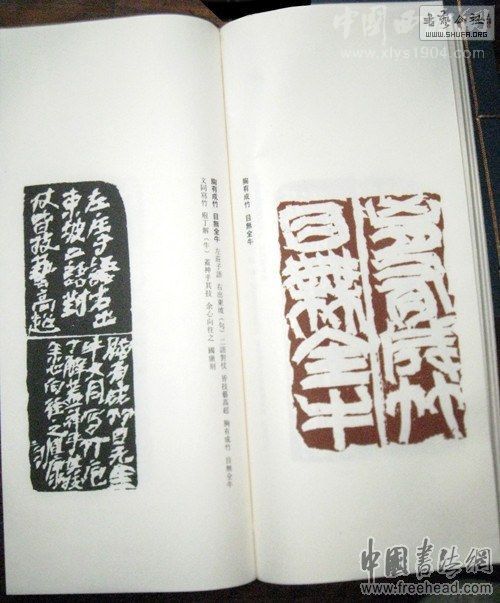 中國西
www.xlys1904.com
WWW.SHUFA.ORG
胸有成竹
目無全牛
胸有成竹 目無全牛
胸有成竹 目無全牛 左莊子語 右出東坡(句) 二語對仗 皆技藝高超 胸有成竹 目無全牛
文同寫竹 庖丁解(牛) 蓋神乎其技 余心向往之 國維刻
左庄子語右出
東坡二語對
仗皆技藝高超
胸有成竹目無全
牛文同寫竹庖
丁解蓋神乎其技
余心向往之
中國書法網
www.freehead.com